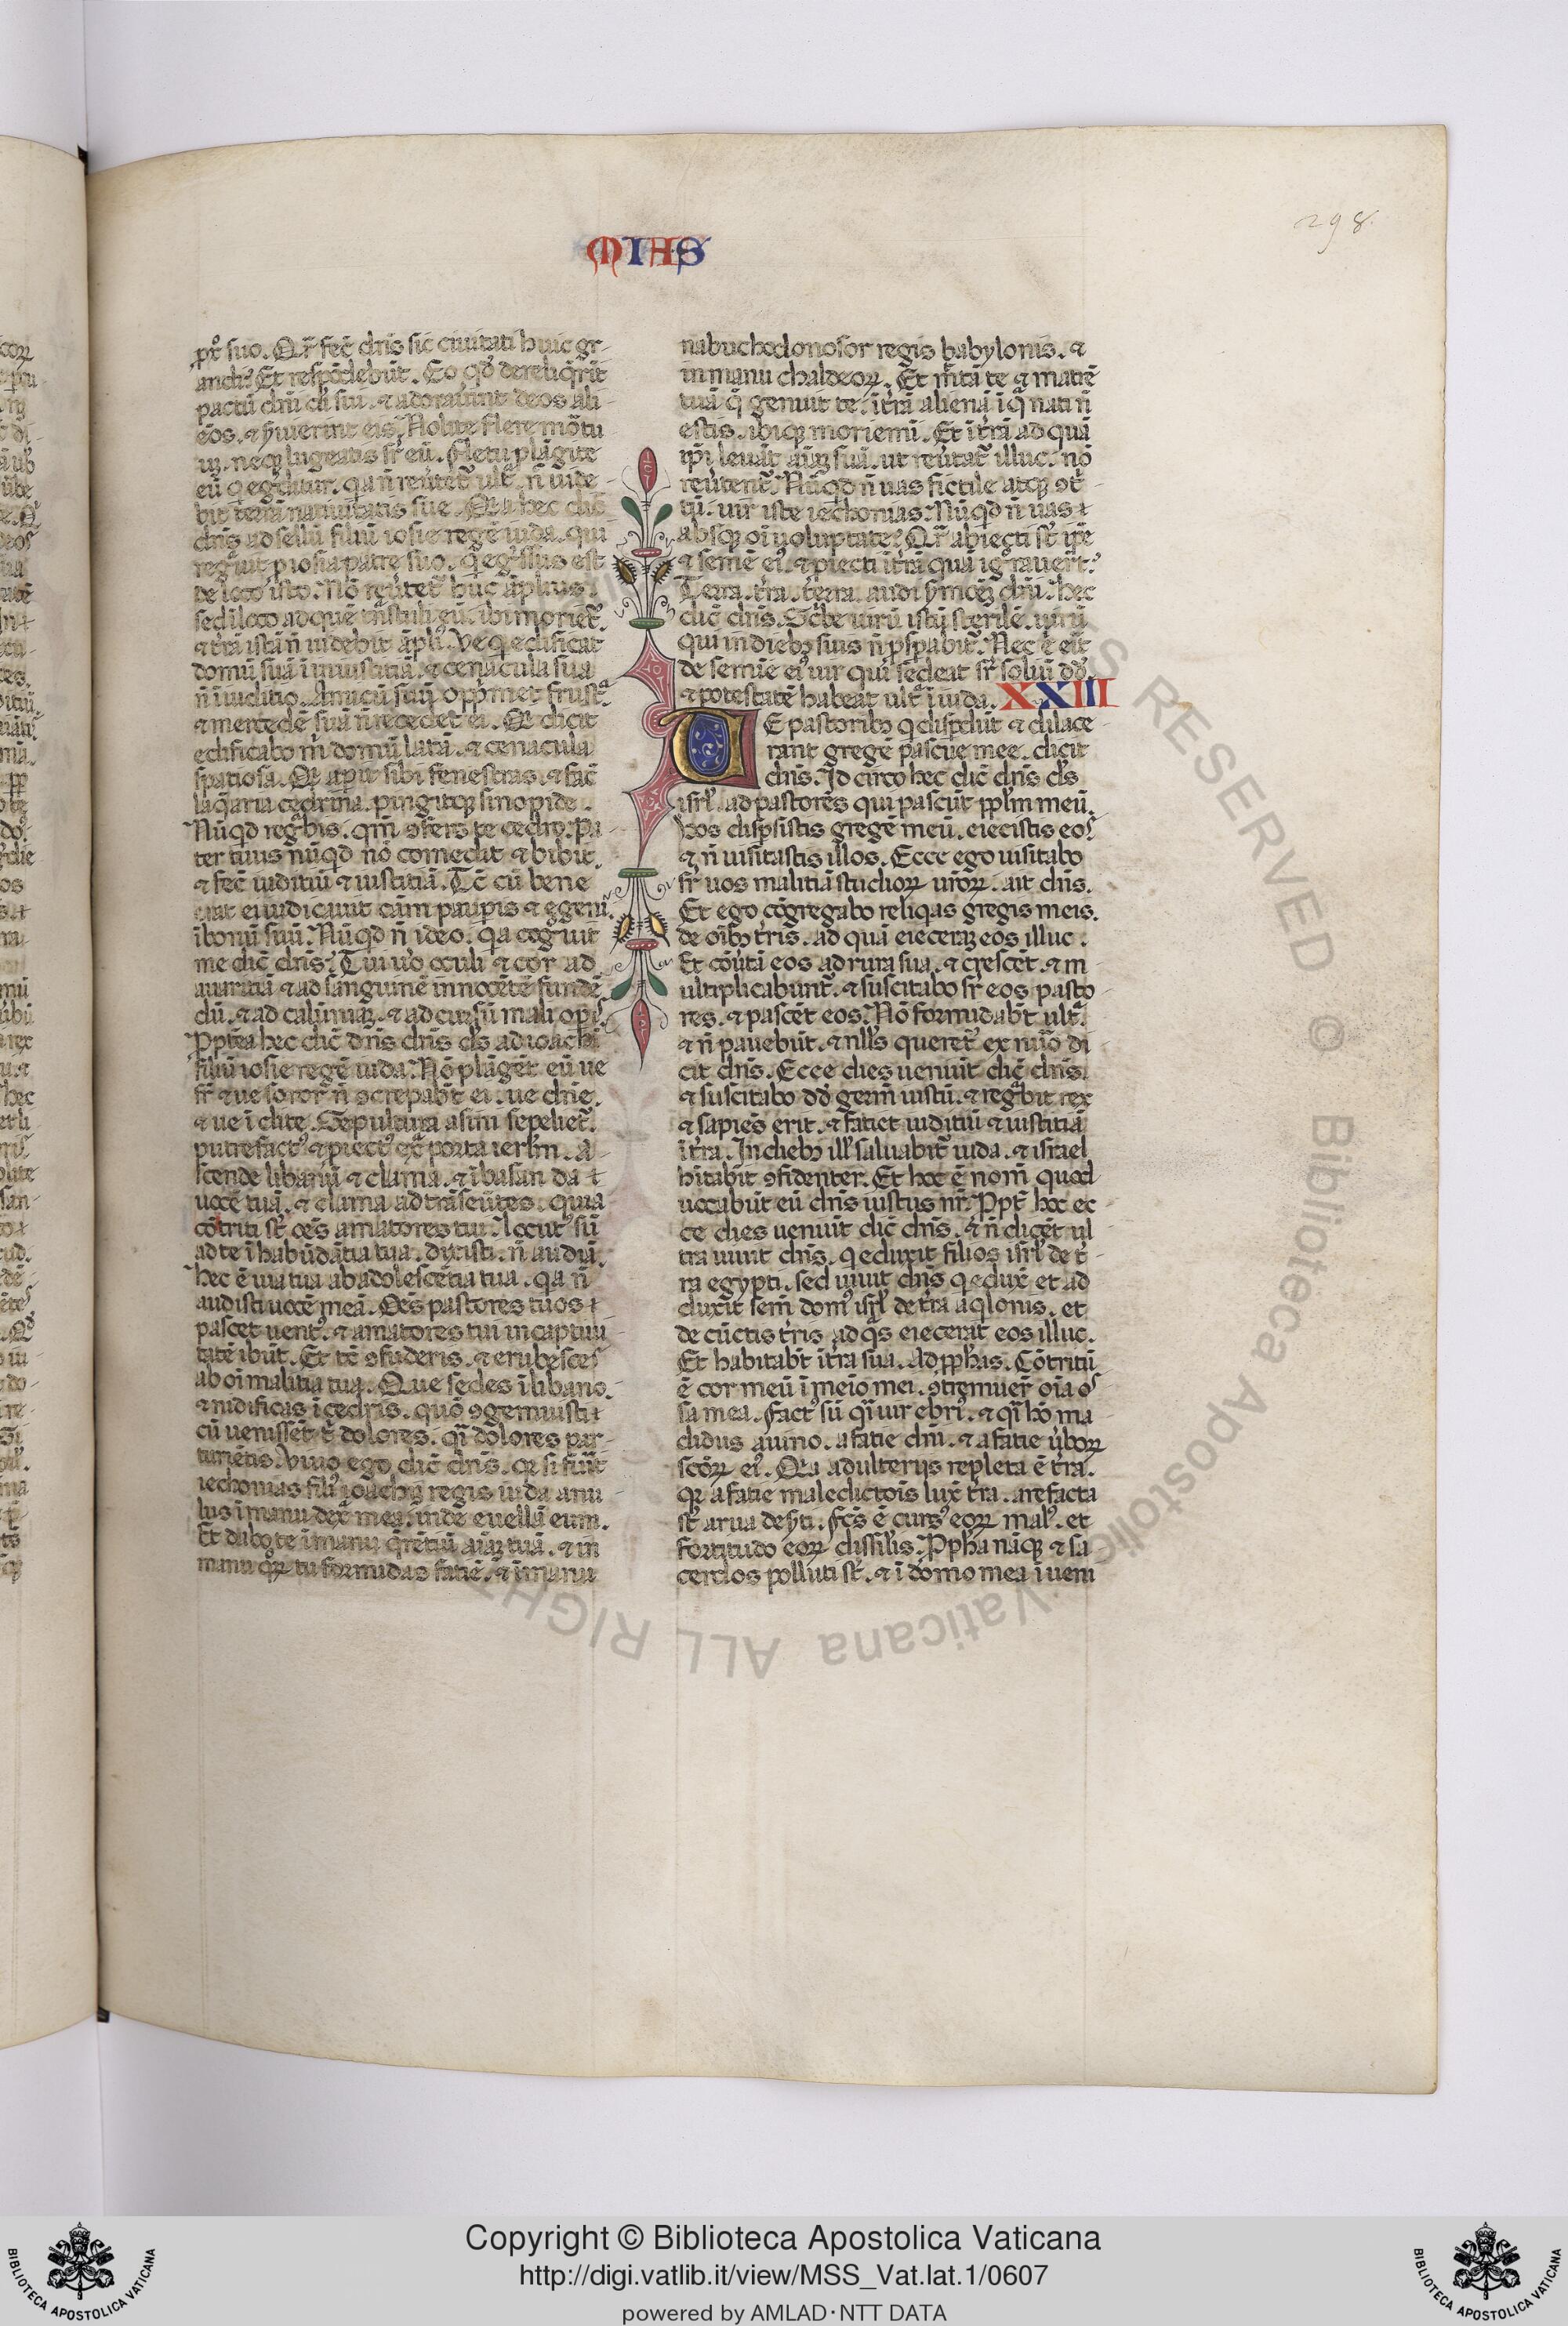 MIAS
298.
pxo suo. Qr̄ fec̄ dn̄s sic ciuitati huic gr-
andi. Et respōdebūt. Eo qd̓ dereliq̄rīt
pactū dn̄i di sui. ⁊ adorauint deos ali-
eos. ⁊ ẜuierint eis. Nolite flere mōtu
uꝫ. neqꝫ lugeatis sr̄ eū. fletu plāgite
eū ꝗ egditur. qa n̄ reūtet̄ ult̄. n̄ uide-
bit terrā natiuitatis sue. Qa hec dic̄
dn̄s ad sellū filiū iosie regē iuda. qui
regͣuit p iosia patre suo. q̄ egͥssus est
de loco isto. Nō reūtet̄ huc āplius.
sed ī loco ad quē trāstuli eū. ibi moriet̄.
⁊ tr̄ā istā n̄ uidebit āpli᾽. Ve q̄ edificat
domū suā ī iniustitiā. ⁊ cenacula sua
n̄ ī iuditio. Amicū suū opp̄met frustͣ.
⁊ mercedē suā n̄ recedet ei. Qi dicit
edificabo m̄ domū latā. ⁊ cenacula
spatiosa. Qi apit sibi fenestras. ⁊ fac̄
laq̄aria cedrina. pingitqꝫ sinopide.
Nūqd regͣbis. qm̄ ↄfers te cedro. Pa-
ter tuus nūqd nō comedit ⁊ bibit.
⁊ fec̄ iuditiū ⁊ iustitiā. Tc̄ cū bene
erat ei iudicauit cām paupis ⁊ egeni.
ī bonū suū. Nūqd n̄ ideo. qa cogͦuit
me dic̄ dn̄s. Tui uo̓ oculi ⁊ cor ad
auaritiā ⁊ ad sanguinē innocētē fundē
dū. ⁊ ad calūniaꝫ. ⁊ ad cursū mali opis
Ppt̓ea hec dic̄ dn̄s dn̄s ds̄ ad ioachī
filiū iosie regē iuda. Nō plāgēt eū ue
fr̄ ⁊ ue soror n̄ ↄcrepabt̄ ei. ue dn̄e.
⁊ ue īclite. Sepultura asini sepeliet̄.
putrefact᾽ ⁊ piect᾽ exͣ porta ierlm̄. A-
scende libanū ⁊ clama. ⁊ ī basan da
uocē tuā. ⁊ clama ad trāseūtes. quia
cōtriti st̄ oēs amatores tui. locut᾽ sū
ad te ī habūdātia tua. dixisti. n̄ audiā.
hec ē uia tua ab adolescētia tua. qa n̄
audisti uocē meā. Oēs pastores tuos
pascet uent᾽. ⁊ amatores tui in captiui
tatē ibūt. Et tc̄ ↄfūderis. ⁊ erubesces
ab oī malitia tua. Que sedes ī libano.
⁊ nidificas ī cedris. quō ↄgemuisti
cū uenissēt t̄ dolores. qͣi dolores par-
turiētis. Viuo ego dic̄ dn̄s. qꝛ si fuīt
iechonias fili᾽ ioachī regis iuda anu
lus ī manu dexͣ mea. inde euellā eum.
Et dabo te ī manu q̄rētiū aīaꝫ tuā. ⁊ in
manu qͦꝝ tu formidas fatiē. ⁊ ī manu
nabuchodonosor regis babylonis. ⁊
in manu chaldeoꝝ. Et mittā te ⁊ matrē
tuā q̄ genuit te. ī tr̄ā alienā ī q̄ nati n̄
estis. ibiqꝫ moriemī. Et ī tr̄ā ad quā
ip̄i leuāt aīaꝫ suā. ut reūtāt̄ illuc. nō
reūtent̄. Nūqd n̄ uas fictile atqꝫ ↄt̓
tū. uir iste iechonias. Nūqd n̄ uas
absqꝫ oī uoluptate. Qr̄ abiecti st̄ ip̄e
⁊ semē ei᾽. ⁊ piecti ī tr̄ā quā igͦrauert̄.
Terra. tr̄a. terra. audi ẜmoēꝫ dn̄i. hec
dic̄ dn̄s. Scͥbe uirū istū sterilē. uirū
qui in diebꝫ suis n̄ psp̄abit̄. Nec ē erit
de semīe ei᾽ uir qui sedeat sr̄ soliū dd̄.
⁊ potestatē habeat ultͣ ī iuda. XXIII
VE pastoribꝫ q dispdūt ⁊ dilace
rant gregē pascue mee. dicit
dn̄s. Id circo hec dic̄ dn̄s ds̄
isrl̄. ad pastores qui pascūt ppl̄m meū.
Vos dispsistis gregē meū. eiecistis eos
⁊ n̄ uisitastis illos. Ecce ego uisitabo
sr̄ uos malitiā studioꝝ ur̄oꝝ. ait dn̄s.
Et ego cōgregabo reliqas gregis meis.
de oībꝫ tr̄is. ad quā eieceraꝫ eos illuc.
Et cōūtā eos ad rura sua. ⁊ crescēt. ⁊ m-
ultiplicabunt̄. ⁊ suscitabo sr̄ eos pasto-
res. ⁊ pascēt eos. Nō formidabt̄ ultͣ.
⁊ n̄ pauebūt. ⁊ nlls̄ queret̄ ex nūo di-
cit dn̄s. Ecce dies ueniūt dic̄ dn̄s.
⁊ suscitabo dd̄ germ̄ iustū. ⁊ regͣbit rex
⁊ sapiēs erit. ⁊ fatiet iuditiū ⁊ iustitiā
ī tr̄a. In diebꝫ ill᾽ saluabit̄ iuda. ⁊ israel
hītabit ↄfidenter. Et hoc ē nom̄ quod
uocabūt eū dn̄s iustus nr̄. Ppt̄ hoc ec-
ce dies ueniūt dic̄ dn̄s. ⁊ n̄ dicēt ul
tra uiuit dn̄s. q eduxit filios isrl̄ de t̓-
ra egypti. sed uiuit dn̄s q eduxͭ et ad
duxit sem̄ dom᾽ isrl̄ de tr̄a aqlonis. et
de cūctis tr̄is ad q̄s eiecerat eos illuc.
Et habitabt̄ ī tr̄a sua. Ad pphas. Cōtritū
ē cor meū ī meīo mei. ↄtremuer̄ oīa os
sa mea. Fact᾽ sū qͣi uir ebri᾽. ⁊ qͣi hō ma-
didus a uino. a fatie dn̄i. ⁊ a fatie ūboꝝ
sc̄oꝝ ei᾽. Qa adulteriis repleta ē tr̄a.
qꝛ a fatie maledictōis lux̄ tr̄a. arefacta
st̄ arua deẜti. Fc̄s ē curs᾽ eoꝝ mal᾽. et
fortitudo eoꝝ dissil̄is. Ppha nāqꝫ ⁊ sa-
cerdos polluti st̄. ⁊ ī domo mea īueni
Copyright © Biblioteca Apostolica Vaticana
http://digi.vatlib.it/view/MSS_Vat.lat.1/0607
powered by AMLAD·NTT DATA
BIBLIOTECA APOSTOLICA VATICANA
BIBLIOTECA APOSTOLICA VATICANA
© Biblioteca Apostolica Vaticana ALL RIGHTS RESERVED